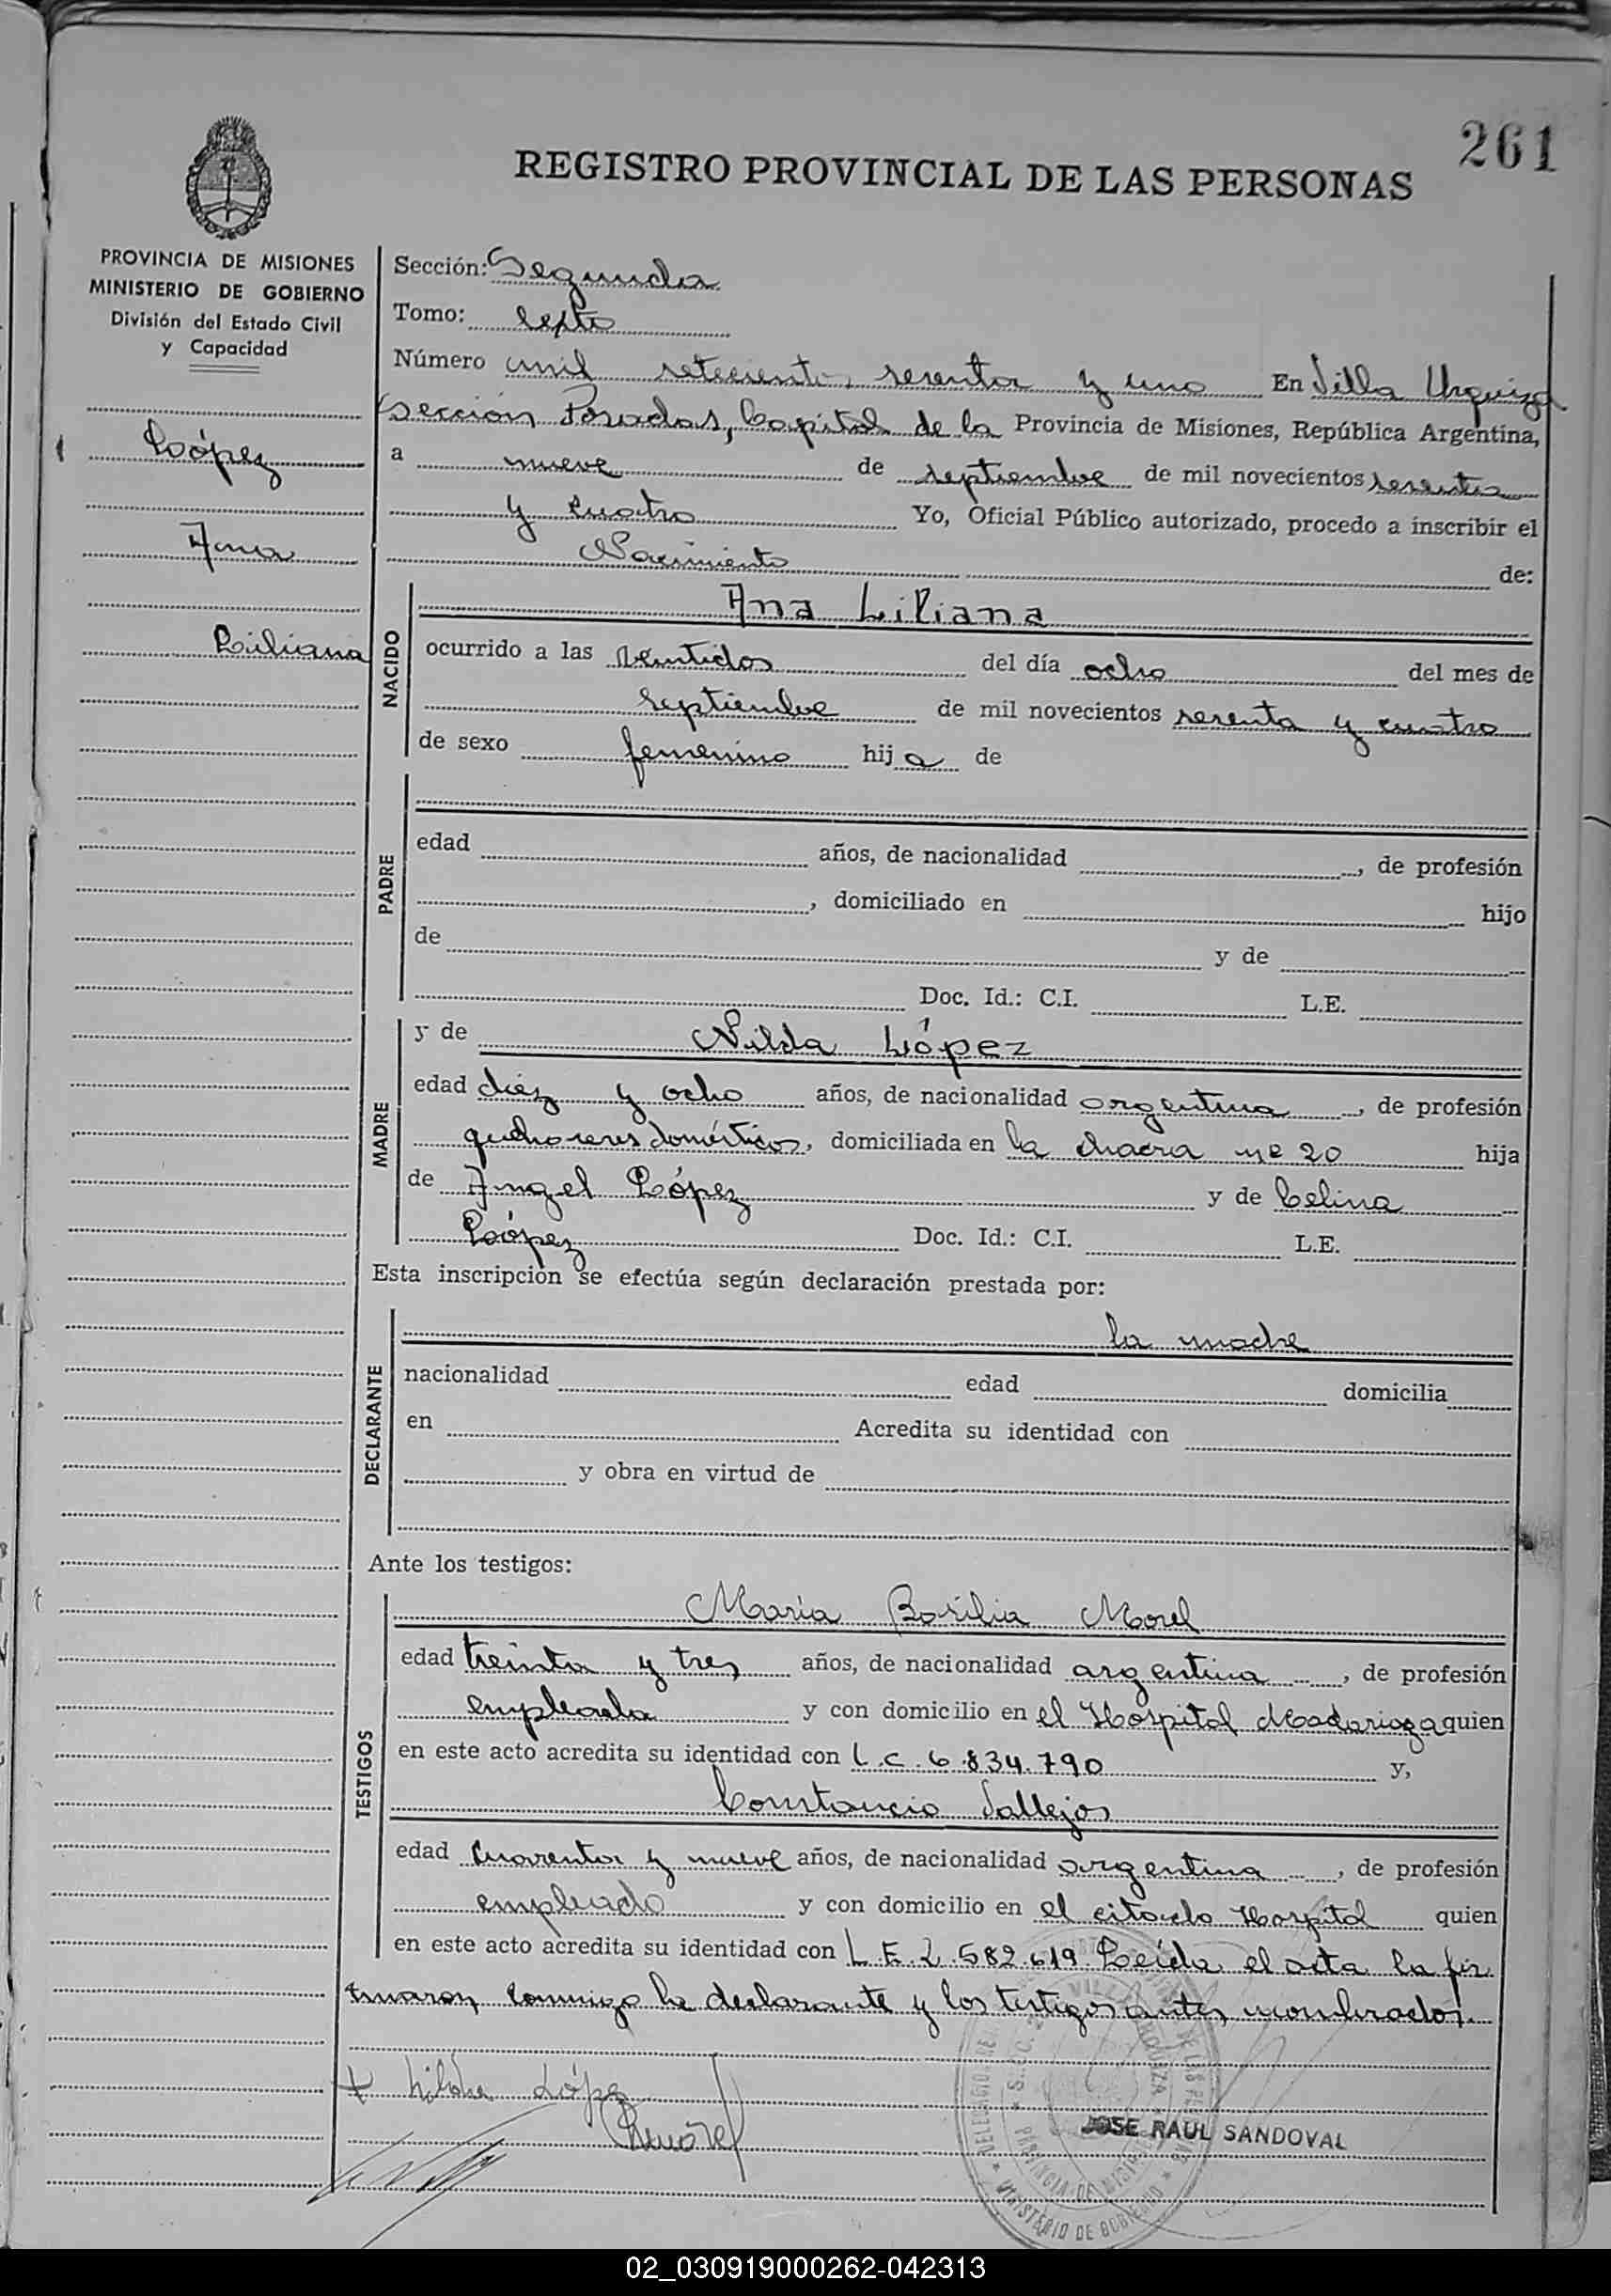 261
REGISTRO PROVINCIAL DE LAS PERSONAS
PROVINCIA DE MISIONES
MINISTERIO DE GOBIERNO
División del Estado Civil
y Capacidad
López
Ana
Liliana
Sección: Segunda
Tomo:
Número mil setecientos sesenta y uno En Villa Urquiza
Sección Posadas, Capital de la Provincia de Misiones, República Argentina,
a nueve de septiembre de mil novecientos sesenta
y cuatro Yo, Oficial Público autorizado, procedo a inscribir el
Nacimiento de:
NACIDO
Ana Liliana
ocurrido a las veintidos del día ocho del mes de
septiembre de mil novecientos sesenta y cuatro
de sexo femenino hija de
PADRE
edad años, de nacionalidad , de profesión
, domiciliado en hijo
de y de
Doc. Id.: C.I. L.E.
MADRE
y de Nilda López
edad diez y ocho años, de nacionalidad argentina, de profesión
quehaceres domésticos, domiciliada en la chacra nº 20 hija
de Angel López y de Celina
López Doc. Id.: C.I. L.E.
Esta inscripción se efectúa según declaración prestada por:
DECLARANTE
la madre
nacionalidad edad domicilia
en Acredita su identidad con
y obra en virtud de
Ante los testigos:
TESTIGOS
María Basilia Morel
edad treinta y tres años, de nacionalidad argentina, de profesión
empleada y con domicilio en el Hospital Madariaga quien
en este acto acredita su identidad con L.C. 6.834.790 y,
Constancio Vallejos
edad cuarenta y nueve años, de nacionalidad argentina, de profesión
empleado y con domicilio en el citado Hospital quien
en este acto acredita su identidad con L.E. 2.582.619. Leída el acta la fir
maron conmigo la declarante y los testigos antes nombrados.
Nilda López
Morel
JOSE RAUL SANDOVAL
MINISTERIO DE GOBIERNO
PROVINCIA DE MISIONES
02_030919000262-042313